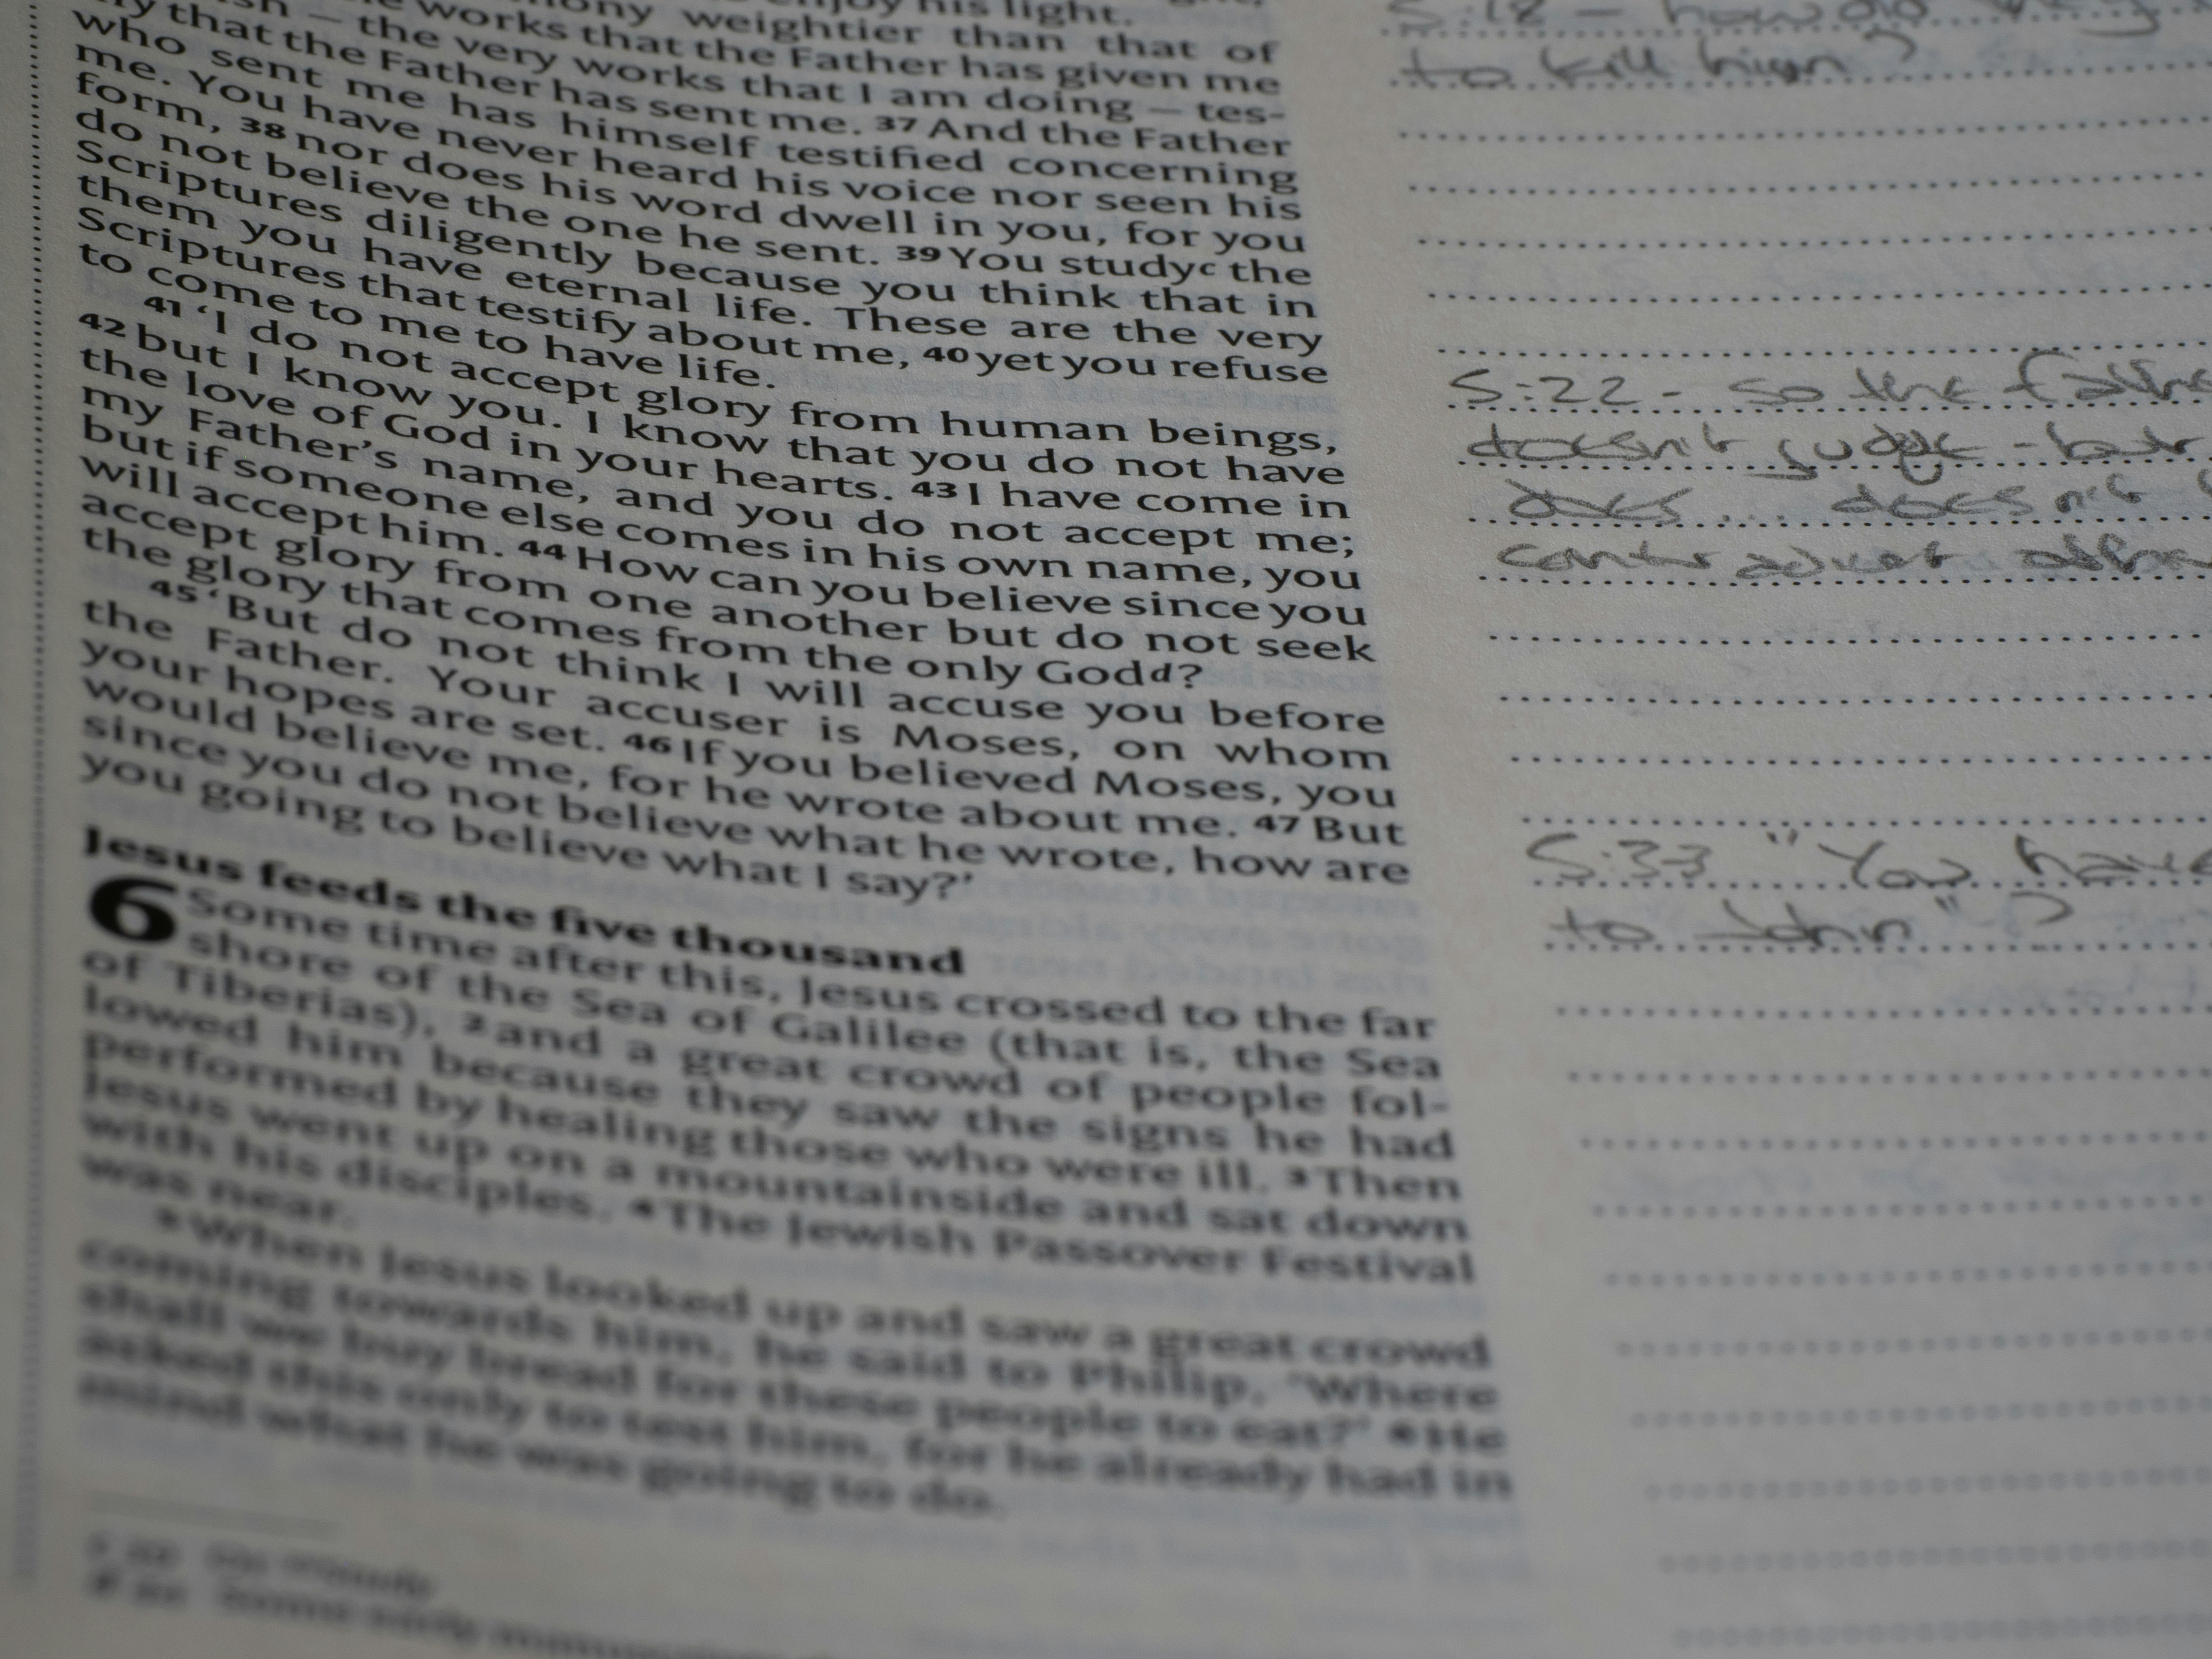 enjoy his light.
weightier than that of
works that the Father has given me
– the very works that I am doing – tes-
that the Father has sent me. 37 And the Father
who sent me has himself testified concerning
me. You have never heard his voice nor seen his
form, 38 nor does his word dwell in you, for you
do not believe the one he sent. 39 You studyc the
Scriptures diligently because you think that in
them you have eternal life. These are the very
Scriptures that testify about me, 40 yet you refuse
to come to me to have life.
41 ‘I do not accept glory from human beings,
42 but I know you. I know that you do not have
the love of God in your hearts. 43 I have come in
my Father’s name, and you do not accept me;
but if someone else comes in his own name, you
will accept him. 44 How can you believe since you
accept glory from one another but do not seek
the glory that comes from the only Godd?
45 ‘But do not think I will accuse you before
the Father. Your accuser is Moses, on whom
your hopes are set. 46 If you believed Moses, you
would believe me, for he wrote about me. 47 But
since you do not believe what he wrote, how are
you going to believe what I say?’
Jesus feeds the five thousand
6 Some time after this, Jesus crossed to the far
shore of the Sea of Galilee (that is, the Sea
of Tiberias), 2 and a great crowd of people fol-
lowed him because they saw the signs he had
performed by healing those who were ill. 3 Then
Jesus went up on a mountainside and sat down
with his disciples. 4 The Jewish Passover Festival
was near.
5 When Jesus looked up and saw a great crowd
coming towards him, he said to Philip, ‘Where
shall we buy bread for these people to eat?’ 6 He
asked this only to test him, for he already had in
mind what he was going to do.
5:18 – how did they
to kill him?
5:22 - so the
doesn't judge - but
does ... doesn't
5:33 "You have
to John"?